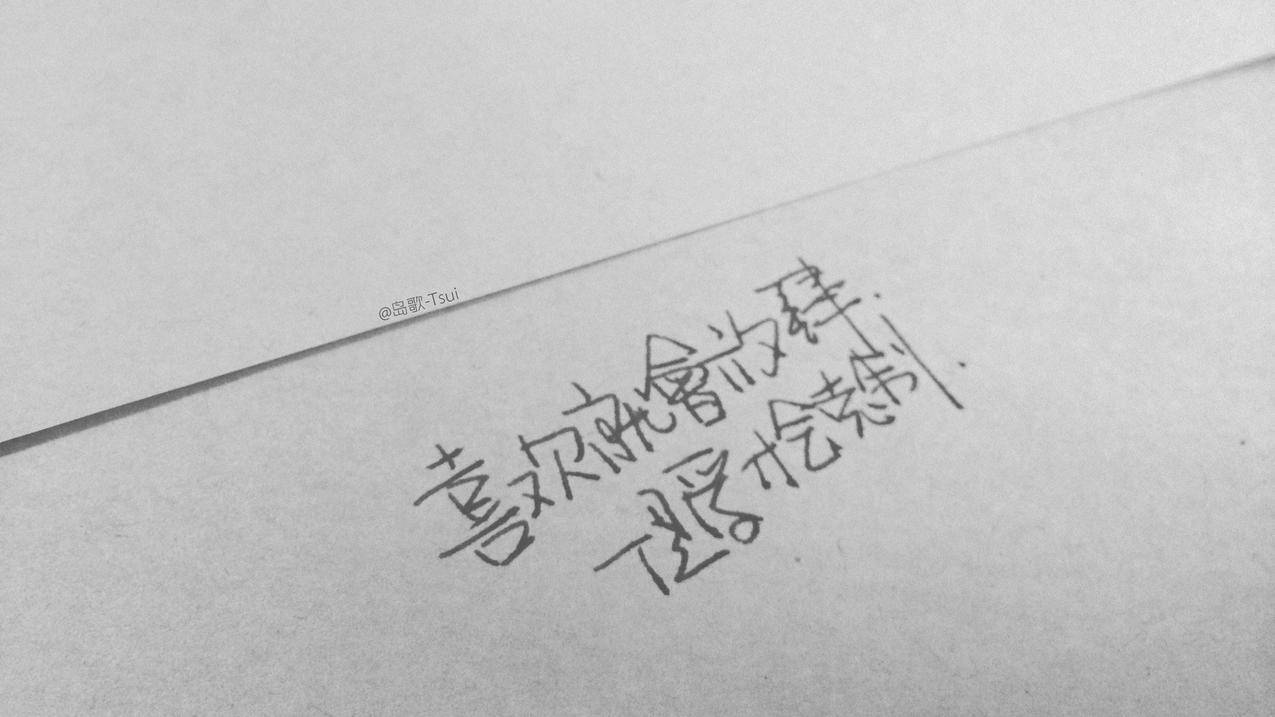 @岛歌-Tsui
喜欢就會放肆.
爱才会克制.